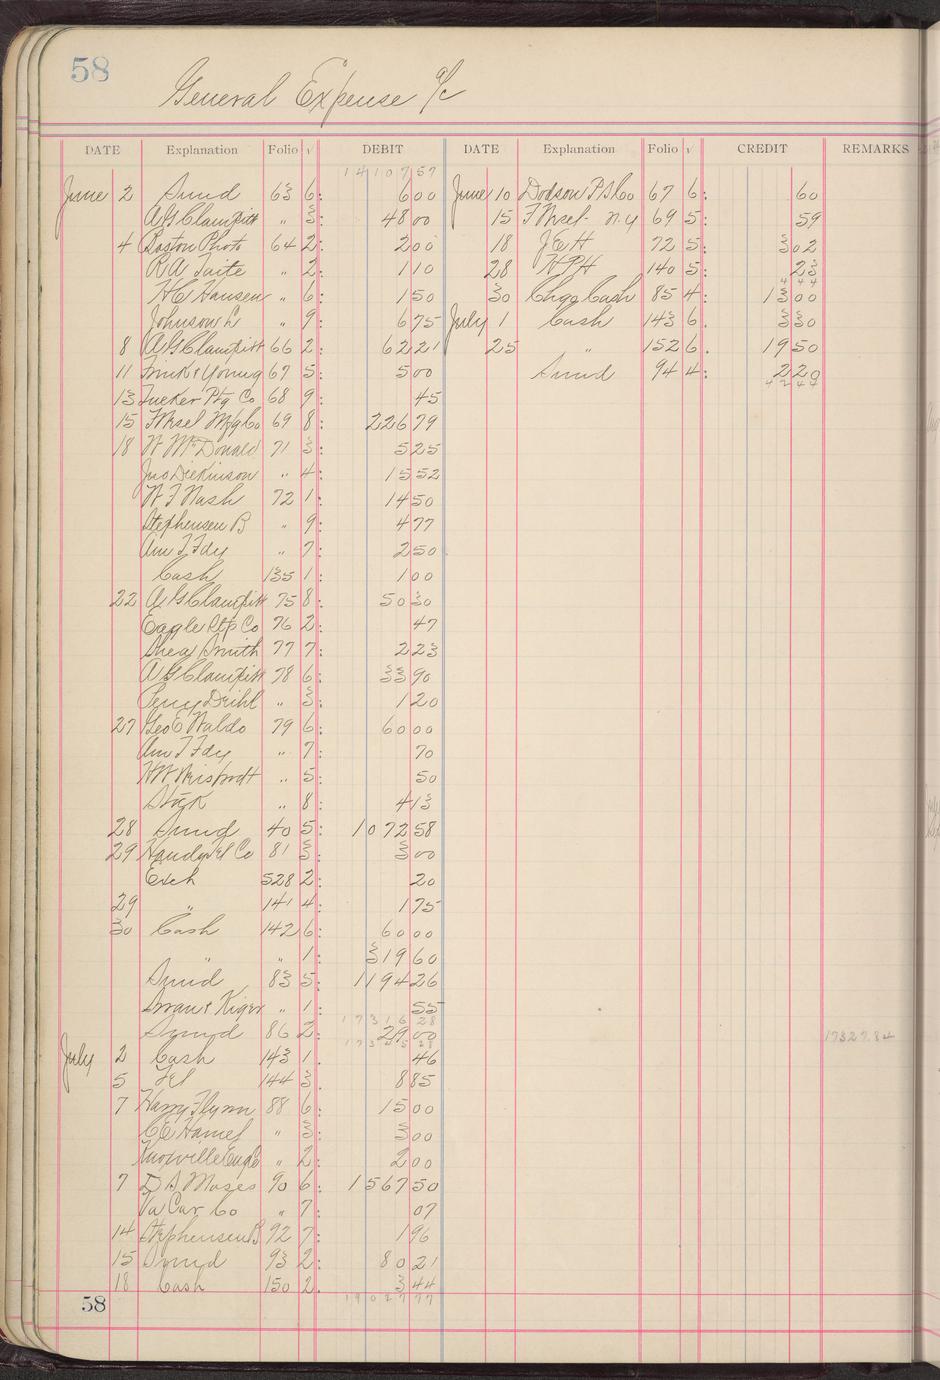 58
General Expense a/c
DATE Explanation Folio √ DEBIT DATE Explanation Folio √ CREDIT REMARKS
14107 57
June 2 Sund 63 6: 6 00 June 10 Dodson P S Co 67 6: 60
A G Clampitt " 3: 48 00 15 69 5: 59
4 Boston Photo 64 2: 2 00 18 J E H 72 5: 3 02
R A Taite " 2: 1 10 28 H P H 140 5: 23
4 44
H C Hansen " 6: 1 50 30 Chgo Cash 85 4: 13 00
Johnson L " 9: 6 75 July 1 Cash 143 6. 3 30
8 A G Clampitt 66 2: 62 21 25 " 152 6. 19 50
11 & Young 67 5: 5 00 Sund 94 4: 2 20
42 44
13 Tucker Ptg Co 68 9: 45
15 Mfg Co 69 8: 226 79
18 W McDonald 71 3: 5 25
Jno Dickinson " 4: 15 52
W F Nash 72 1: 14 50
Stephensen B " 9: 4 77
Am T Fdy " 7: 2 50
Cash 135 1: 1 00
22 A G Clampitt 75 8: 50 30
Eagle Co 76 2: 47
Shea Smith 77 7: 2 23
A G Clampitt 78 6: 33 90
" 3: 1 20
27 Geo E Waldo 79 6: 60 00
Am T Fdy " 7: 70
" 5: 50
Stock " 8: 4 13
28 Sund 40 5: 1072 58
29 Co 81 3: 3 00
Exch 528 2: 20
29 " 141 4: 1 75
30 Cash 142 6: 60 00
" " 1: 319 60
Sund 83 5: 1194 26
Swan & " 1: 55
17316 28
Synyd 86 2: 29 00
17345 28
17327.84
July 2 Cash 143 1. 46
5 Tel 144 3. 8 85
7 Harry Flynn 88 6: 15 00
C E " 3: 3 00
Knoxville " 2: 2 00
7 D A Moses 90 6: 1567 50
Va Car Co " 7: 07
14 Stephensen B 92 7: 1 96
15 Synd 93 2: 80 21
18 Cash 150 2. 3 44
19027 77
58